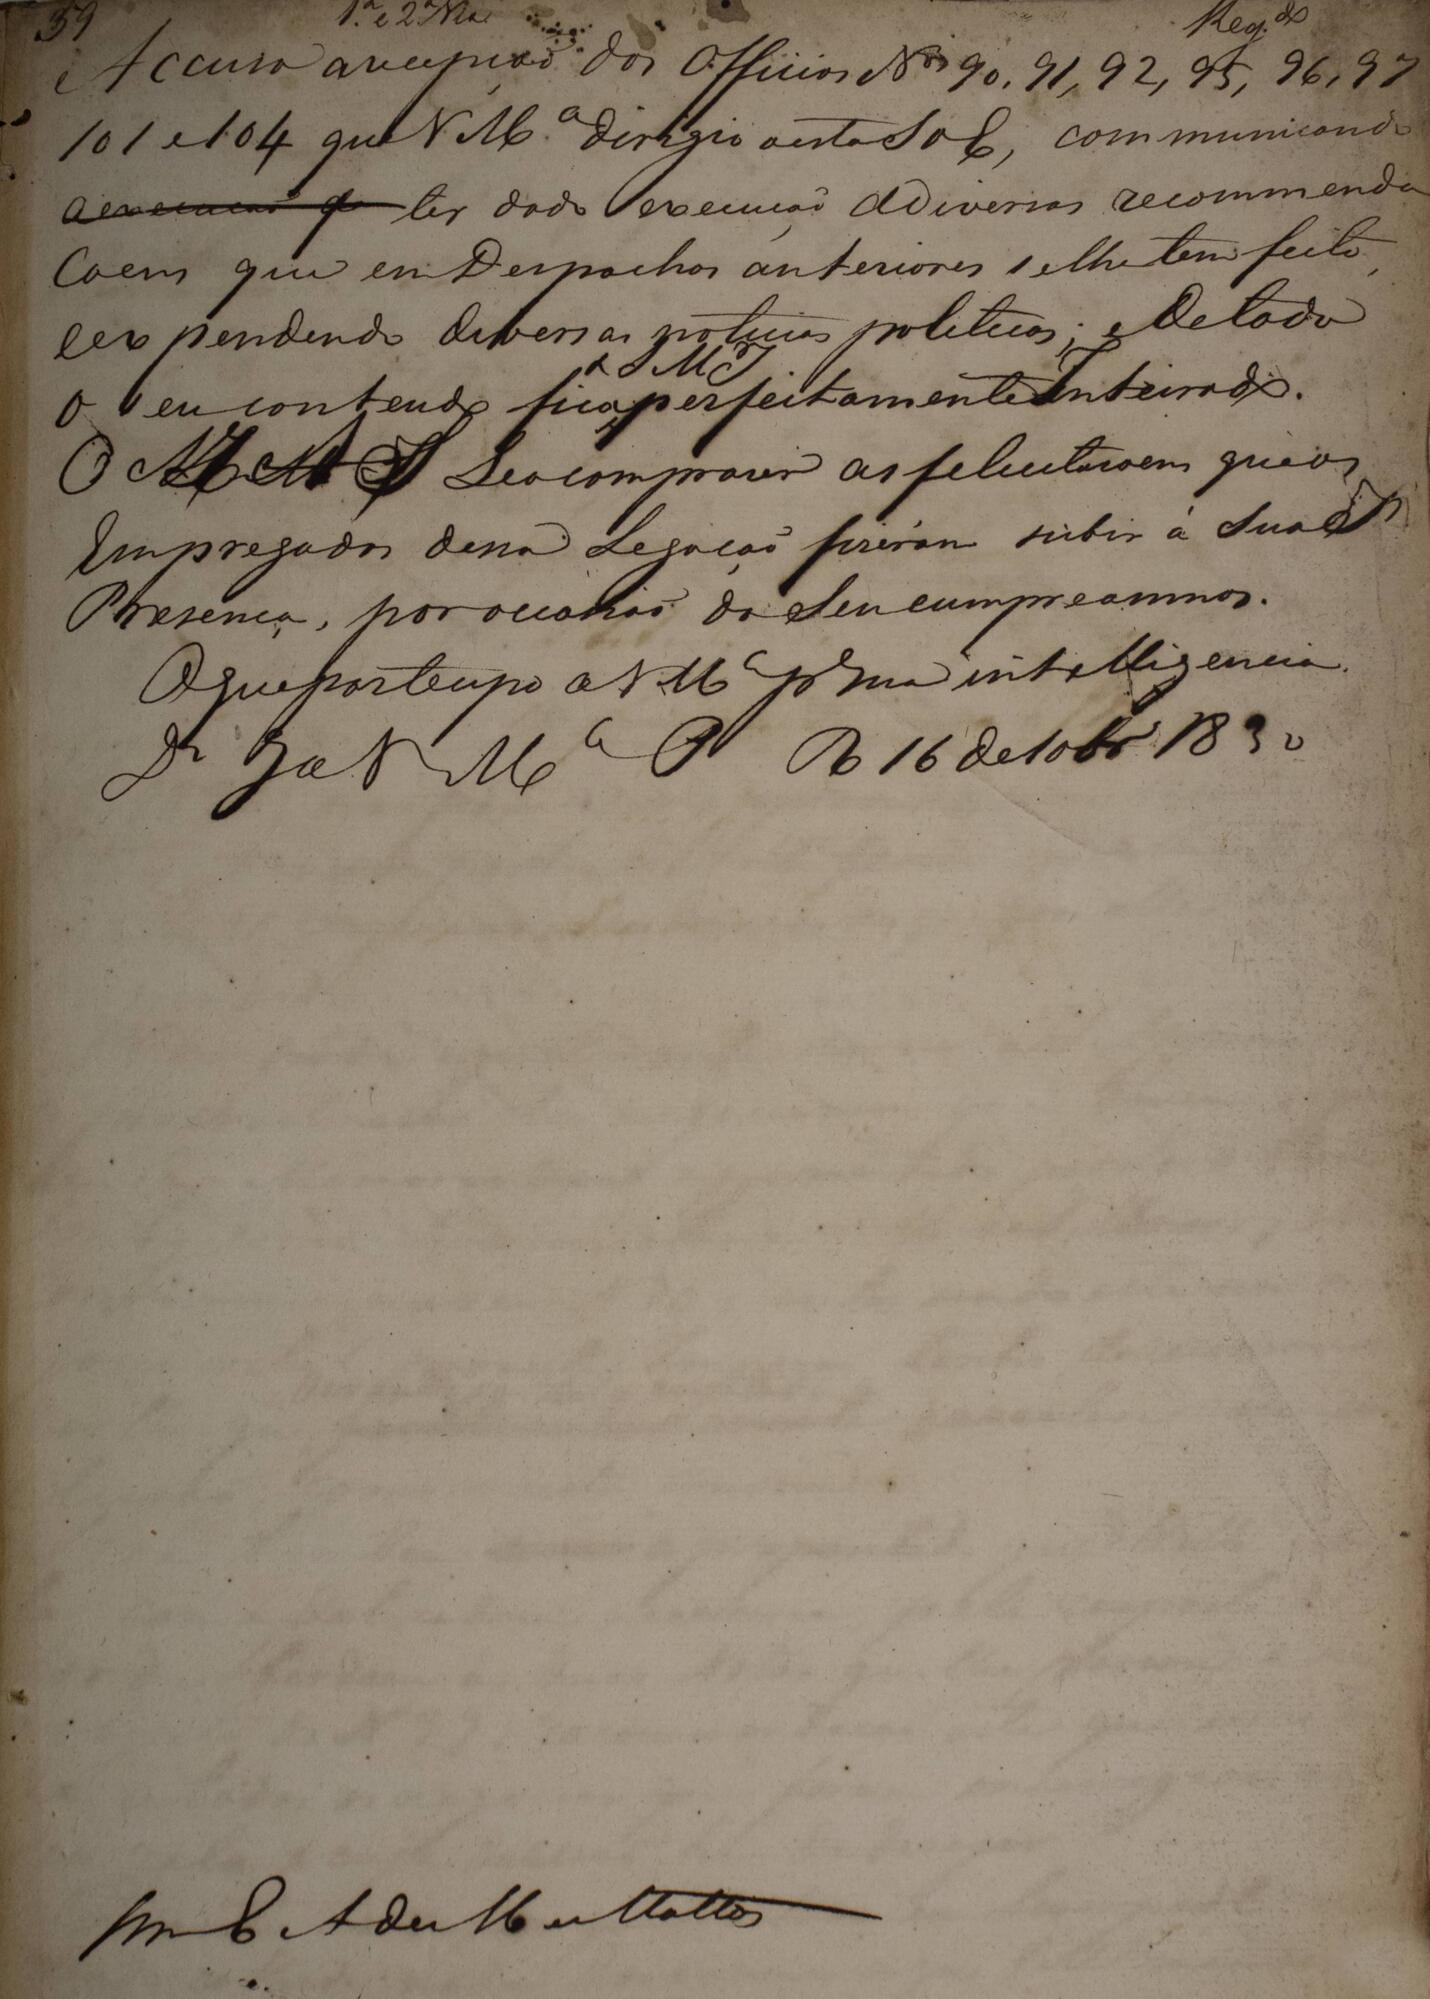 39 1.ª e 2.ª Via Reg.do
Accuso a recepção dos Officios Nos 90, 91, 92, 95, 96, 97
101 e 104 que V Mcê dirigio a esta S d E, communicando
a execução q ter dado execução a diversas recommenda
çoens que em Despachos anteriores se lhe tem feito,
e expendendo diversas noticias politicas; e de todo
o seu contendo fica S M I perfeitamente Inteirado.
O M A S as felicitaçoens que os
Empregados dessa Legação fizérão subir á Sua
Presença, por occasião do Seu cumpreannos.
O que participo a V Mcê pa sua intelligencia.
Ds Ge a V Mcê P em 16 de 10bro 1830
Snr E A de Mattos